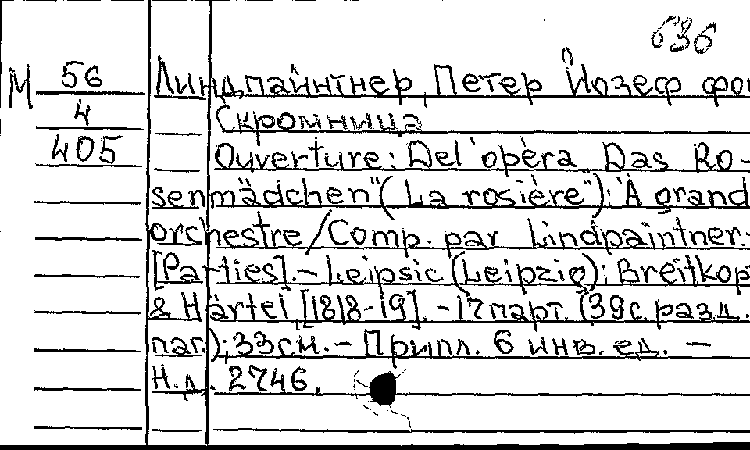 636
М 56 Линдпайнтнер, Петер Йозеф фон
4 Скромница
405 Ouverture: Del'opèra Das Ro-
senmädchen" (La rosière"): À grand
orchestre/Comp. par Lindpaintner.
[Parties]. – Leipsic (Leipzig): Breitkop
& Härtel, [1818-19]. – 17 парт. (39 с. разд.
паг.); 33 см. – Припл. 6 инв. ед. –
Н.д. 2746.